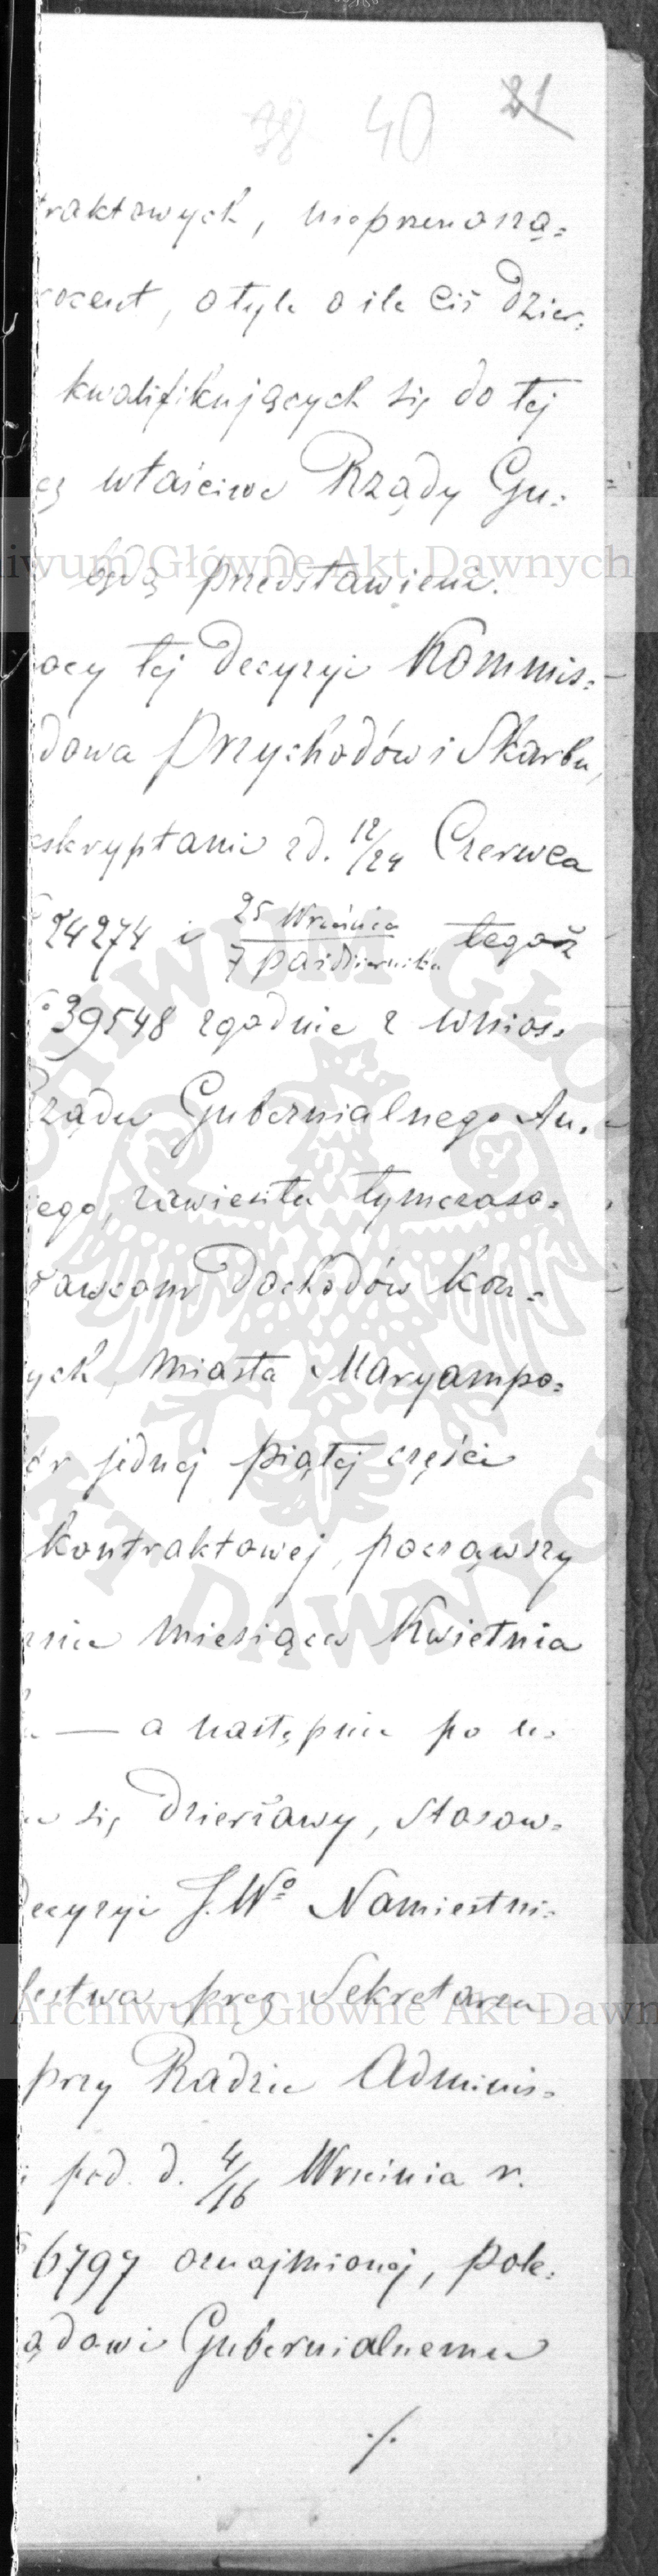 38 40 21
traktowych, nieprzenoszą=
rocent, o tyle o ile ciż Dzier=
kwalifikujących się do tej
ez właściwe Rządy Gu=
będą przedstawieni.
ocy tej decyzyi Kommis=
dowa Przychodów i Skarbu,
eskryptami z d. 12/24 Czerwca
24274 i 25 Września / 7 Października tegoż
39548 zgodnie z wnios=
Rządu Gubernialnego Au=
iego, zawiesiła tymczaso=
rawcom Dochodów Kon=
ych, miasta Maryampo=
ór jednej piątej części
kontraktowej, począwszy
dnia miesiąca Kwietnia
— a następnie po u=
u się Dzierżawy, stosow=
Decyzyi J.Wo Namiestni=
lestwa przez Sekretarza
przy Radzie Adminis=
pod d. 4/16 Września r.
6797 oznajmionej, pole=
ądowi Gubernialnemu
./.
Archiwum Główne Akt Dawnych
Archiwum Główne Akt Dawn
ARCHIWUM GŁÓWNE AKT DAWNYCH